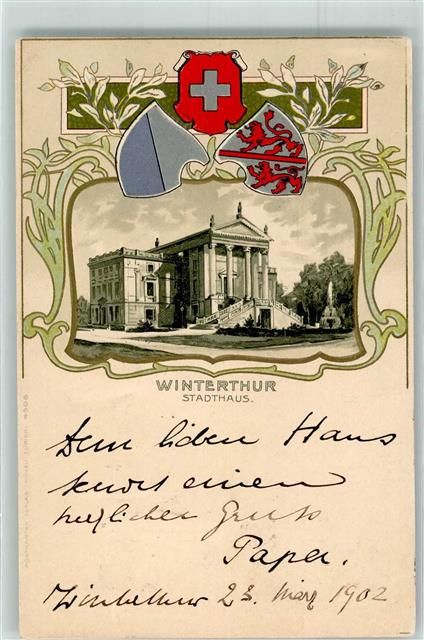 WINTERTHUR
STADTHAUS.
Dem lieben Hans
sendet einen
herzlichen Gruss
Papa.
Winterthur 23. März 1902